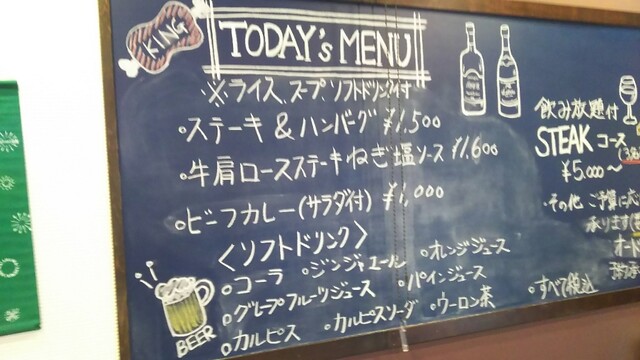 KING
TODAY's MENU
※ライス、スープ、ソフトドリンク付
ステーキ & ハンバーグ ¥1,500
牛肩ロースステーキねぎ塩ソース ¥1,600
ビーフカレー(サラダ付) ¥1,000
<ソフトドリンク>
コーラ ・ジンジャエール ・オレンジジュース
グレープフルーツジュース ・パインジュース
カルピス ・カルピスソーダ ・ウーロン茶
BEER
飲み放題付
STEAK コース
¥5,000〜
・その他 ご予算に
承ります
オー
・すべて税込